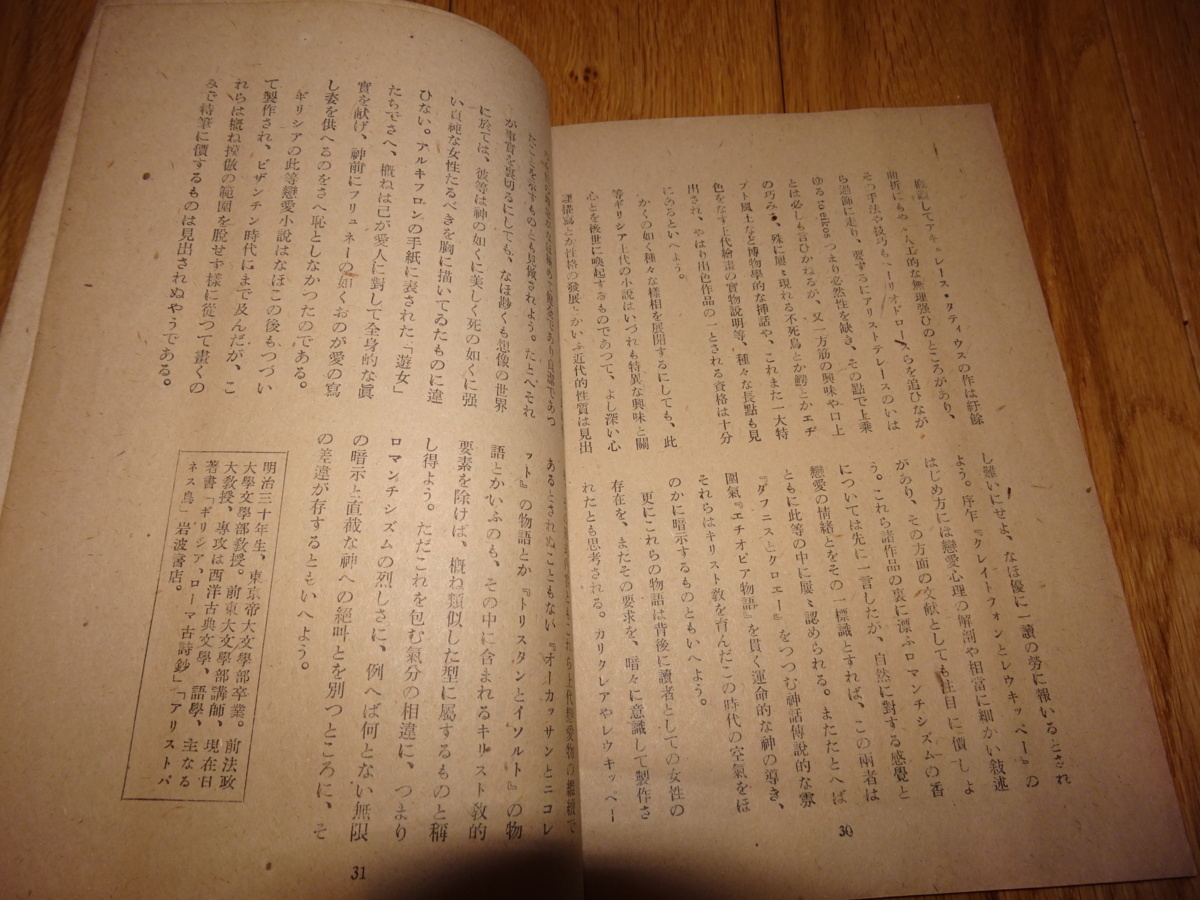 概してアキレース・タティウスの作は紆餘
曲折にもや 人工的な無理強ひのところがあり、
そ 手法や技巧も ーリオドロー らを追ひなが
ら過飾に走り、要するにアリストテレースのいは
ゆる to eikos つまり必然性を缺き、その點で上乘
とは必しも言ひかねるが、又一方筋の興味や口上
の巧み、殊に屢〻現れる不死鳥とか鰐とかエヂ
プト風土など博物學的な挿話や、これまた一大特
色をなす上代繪畫の實物說明等、種々な長點も見
出され、やはり出色作品の一とされる資格は十分
にあるといへよう。
かくの如く種々な樣相を展開するにしても、此
等ギリシア上代の小說はいづれも特異な興味と關
心とを後世に喚起するものであつて、よし深い心
理描寫とか性格の發展とかいふ近代的性質は見出
し難いにせよ、なほ優に一讀の勞に報いるとされ
よう。序乍『クレイトフォンとレウキッペー』の
はじめ方には戀愛心理の解剖や相當に細かい敍述
があり、その方面の文献としても注目に價しよ
う。これら諸作品の裏に漂ふロマンチシズムの香
については先に一言したが、自然に對する感覺と
戀愛の情緒とをその一標識とすれば、この兩者は
ともに此等の中に屢〻認められる。またたとへば
『ダフニスとクロエー』をつつむ神話傳說的な雰
圍氣『エチオピア物語』を貫く運命的な神の導き、
それらはキリスト敎を育んだこの時代の空氣をほ
のかに暗示するものともいへよう。
更にこれらの物語は背後に讀者としての女性の
存在を、またその要求を、暗々に意識して製作さ
れたとも思考される。カリクレアやレウキッペー
30
たことを示すものとも見做されよう。たとへそれ
が事實を裏切るにしても、なほ尠くも想像の世界
に於ては、彼等は神の如くに美しく死の如くに强
い貞純な女性たるべきを胸に描いてゐたものに違
ひない。アルキフロンの手紙に表された「遊女」
たちでさへ、概ねは己が愛人に對して全身的な眞
實を献げ、神前にフリュネーの如くおのが愛の寫
し姿を供へるのをさへ恥としなかつたのである。
ギリシアの此等戀愛小說はなほこの後もつづい
て製作され、ビザンチン時代にまで及んだが、こ
れらは概ね擬倣の範圍を脫せず樣に從つて畫くの
みで特筆に價するものは見出されぬやうである。
あるとされぬこともない『オーカッサンとニコレ
ット』の物語とか『トリスタンとイソルト』の物
語とかいふのも、その中に含まれるキリスト敎的
要素を除けば、概ね類似した型に屬するものと稱
し得よう。ただこれを包む氣分の相違に、つまり
ロマンチシズムの烈しさに、例へば何とない無限
の暗示と直截な神への絕叫とを別つところに、そ
の差違が存するともいへよう。
明治三十年生、東京帝大文學部卒業。前法政
大學文學部敎授。前東大文學部講師、現在日
大敎授、專攻は西洋古典文學、語學、主なる
著書「ギリシア、ローマ古詩鈔」「アリストパ
ネス鳥」岩波書店。
31